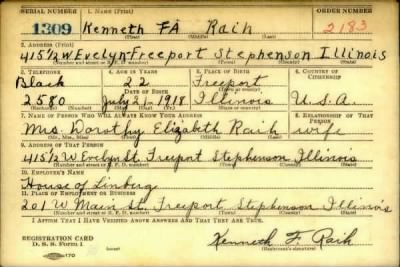 SERIAL NUMBER 1. NAME (Print) ORDER NUMBER
1309 Kenneth FA Raih 2183
(First) (Middle) (Last)
2. ADDRESS (Print)
415 1/2 W Evelyn Freeport Stephenson Illinois
(Number and street or R. F. D. number) (Town) (County) (State)
3. TELEPHONE 4. AGE IN YEARS 5. PLACE OF BIRTH 6. COUNTRY OF CITIZENSHIP
Black 22 Freeport
DATE OF BIRTH (Town or county)
2580 July 21 1918 Illinois U.S.A.
(Mo.) (Day) (Yr.) (State or country)
7. NAME OF PERSON WHO WILL ALWAYS KNOW YOUR ADDRESS 8. RELATIONSHIP OF THAT PERSON
Mrs. Dorothy Elizabeth Raih wife
(Mr., Mrs., Miss) (First) (Middle) (Last)
9. ADDRESS OF THAT PERSON
415 1/2 W Evelyn St. Freeport Stephenson Illinois
(Number and street or R. F. D. number) (Town) (County) (State)
10. EMPLOYER'S NAME
House of Linburg
11. PLACE OF EMPLOYMENT OR BUSINESS
201 W Main St. Freeport Stephenson Illinois
(Number and street or R. F. D. number) (Town) (County) (State)
I AFFIRM THAT I HAVE VERIFIED ABOVE ANSWERS AND THAT THEY ARE TRUE.
REGISTRATION CARD
D. S. S. Form 1 Kenneth F. Raih
(Registrant's signature)